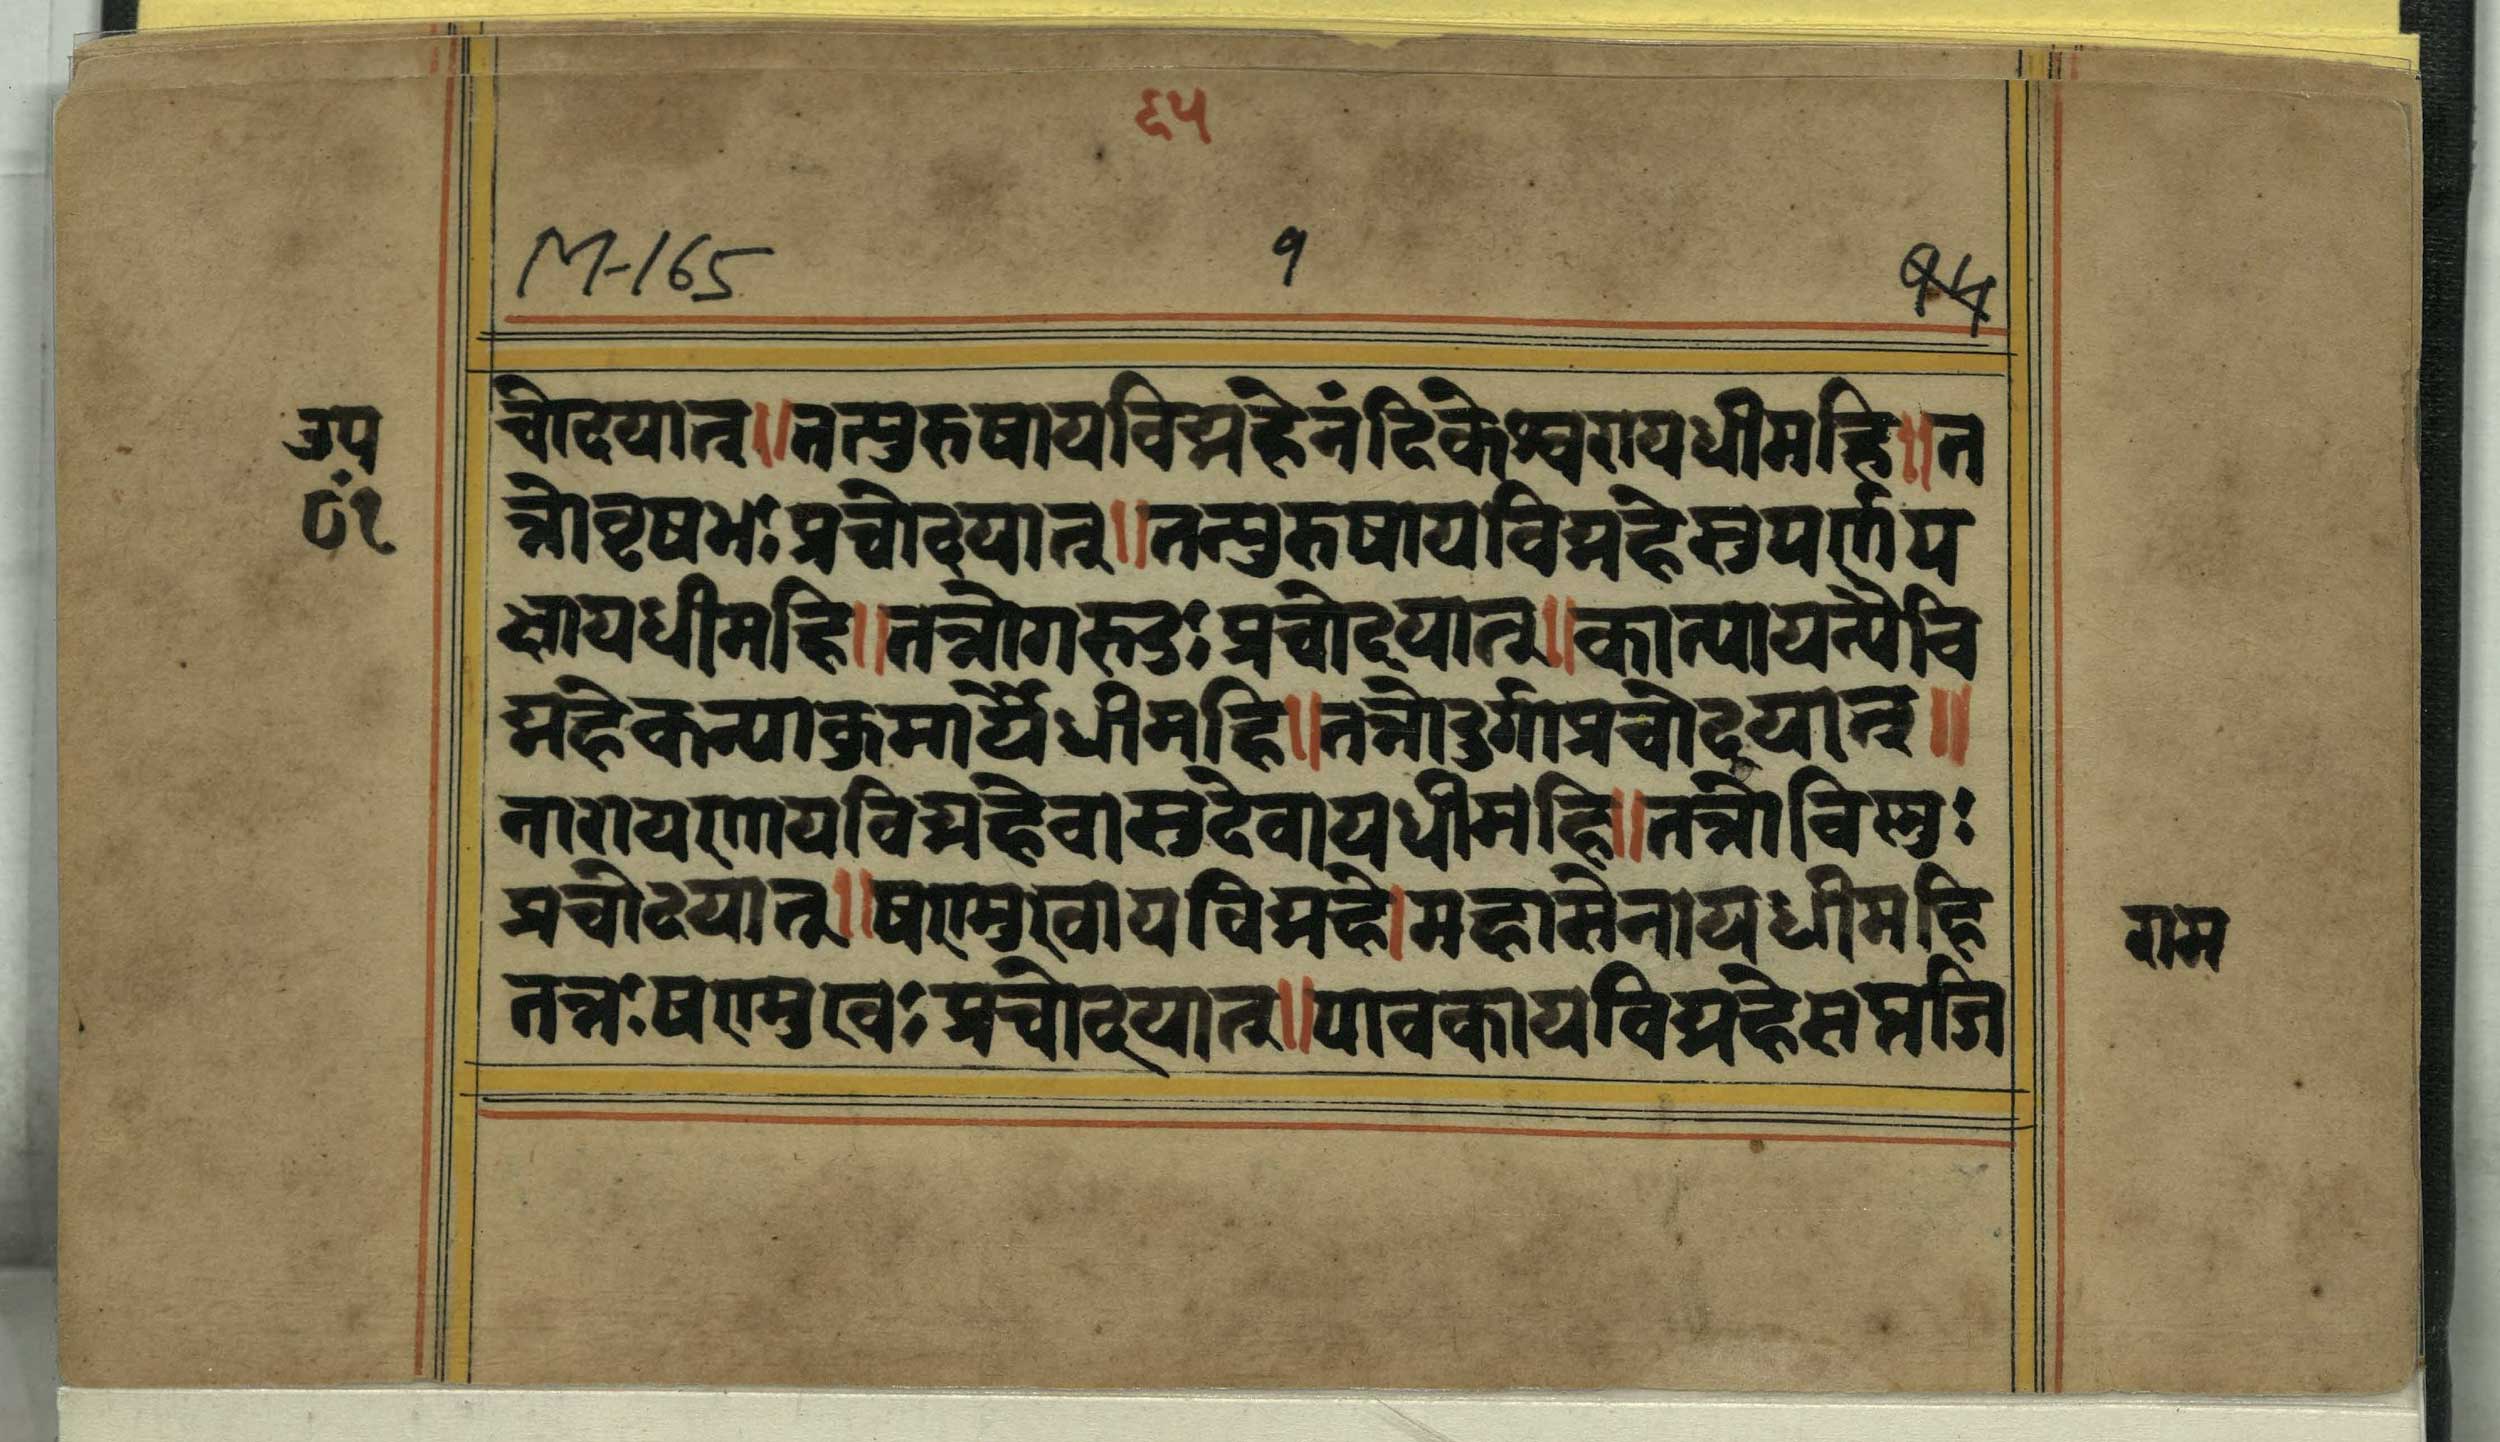 ६५
M-165 १ १५
चोदयात्॥तत्पुरुषायविद्महेनंदिकेश्वरायधीमहि॥त
उप
न्नोवृषभः प्रचोदयात्॥तत्पुरुषायविद्महेसुपर्णप
क्षायधीमहि॥तन्नोगरुडः प्रचोदयात्॥कात्यायन्यैवि
द्महेकन्याकुमार्यैधीमहि॥तन्नोदुर्गाप्रचोदयात्॥
नारायणायविद्महेवासुदेवायधीमहि॥तन्नोविष्णुः
प्रचोदयात्॥षण्मुखायविद्महे।महासेनायधीमहि
राम
तन्नः षण्मुखः प्रचोदयात्॥पावकायविद्महेसप्तजि